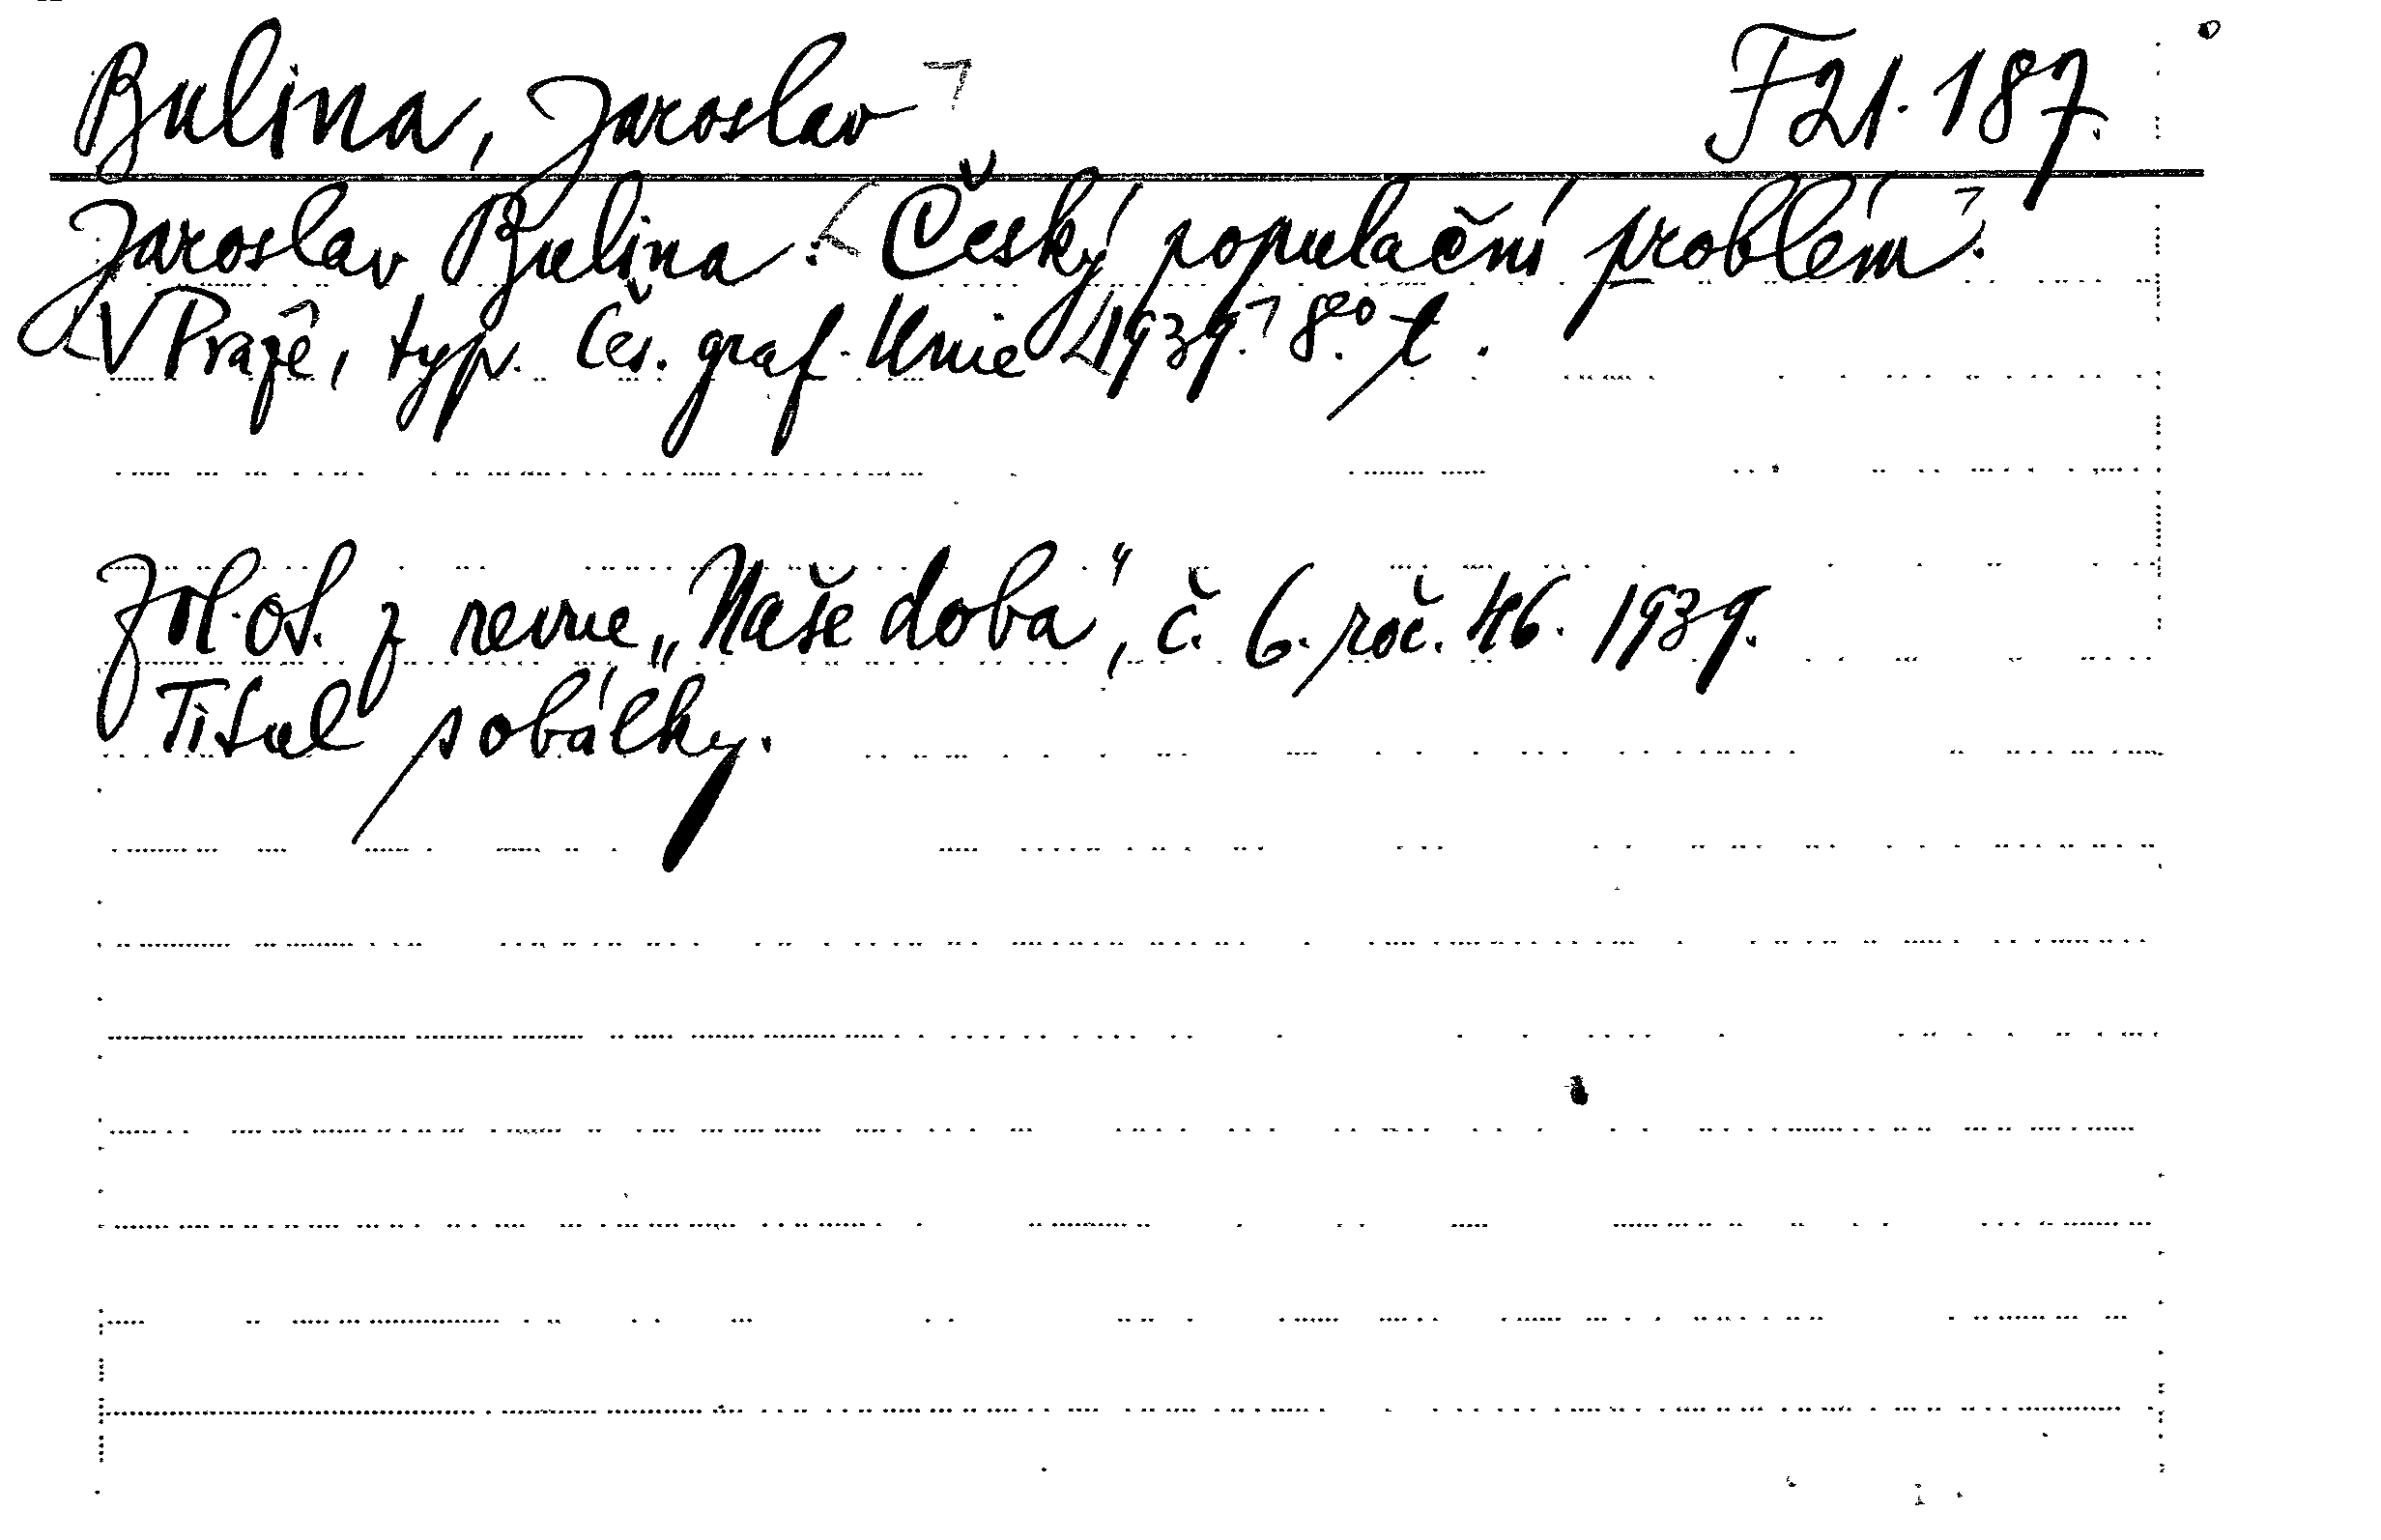 Bulina, Jaroslav F 21.187.
Jaroslav Bulina: Český populační problém.
V Praze, typ. Čes. graf. Unie 1939. 8.° t.
Zvl. ot. z revue „Naše doba", č. 6. roč. 46. 1939.
Titul s obálky.